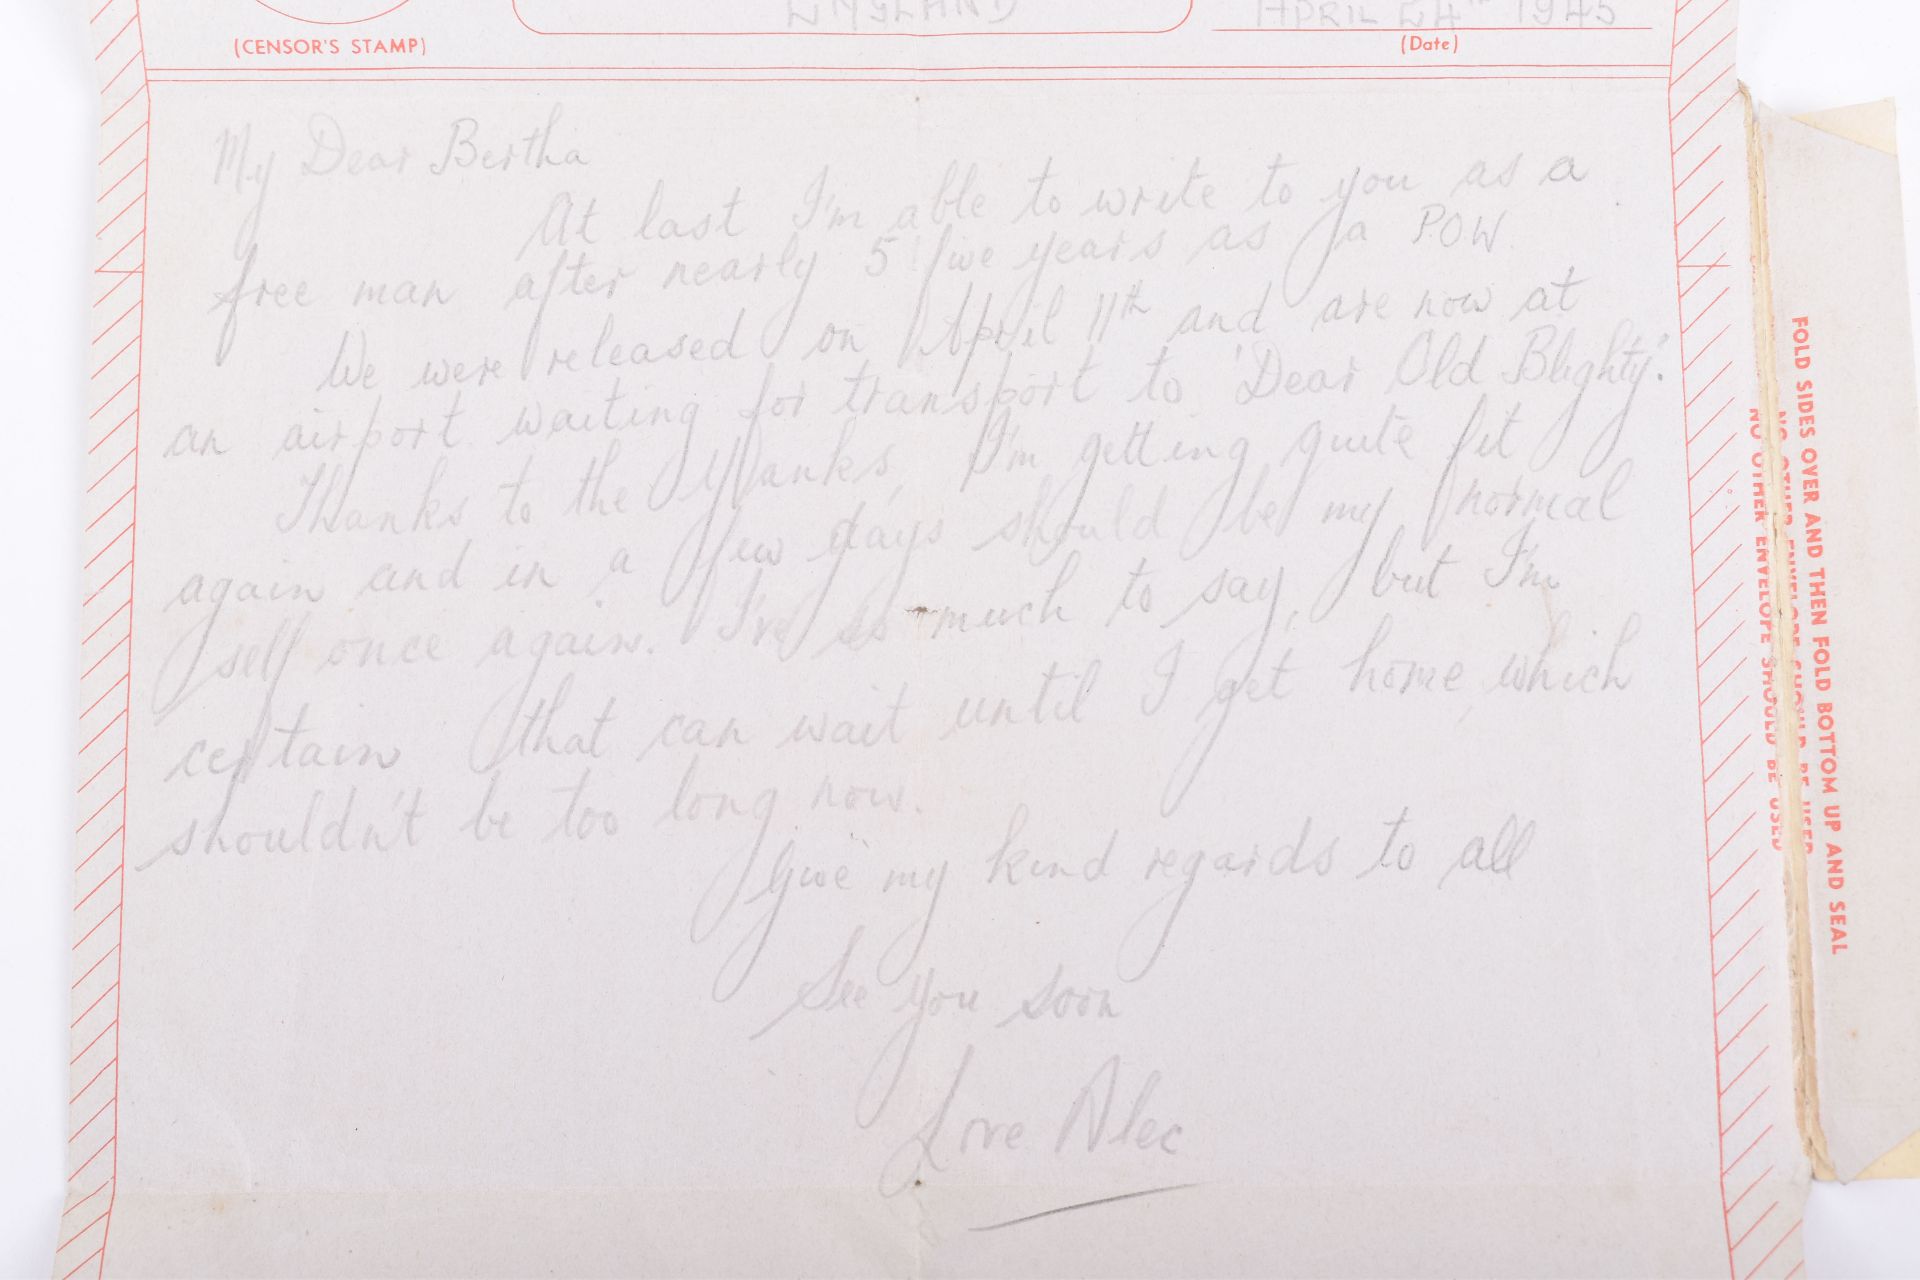 ENGLAND
APRIL 24TH 1945
(CENSOR'S STAMP)
(Date)
My Dear Bertha
At last I'm able to write to you as a
free man after nearly 5 five years as a POW.
We were released on April 11th and are now at
an airport waiting for transport to 'Dear Old Blighty'.
Thanks to the Yanks, I'm getting quite fit
again and in a few days should be my normal
self once again. I've so much to say, but I'm
certain that can wait until I get home, which
shouldn't be too long now.
Give my kind regards to all
See you soon
Love Alec
FOLD SIDES OVER AND THEN FOLD BOTTOM UP AND SEAL
NO OTHER ENVELOPE SHOULD BE USED
NO OTHER ENVELOPE SHOULD BE USED